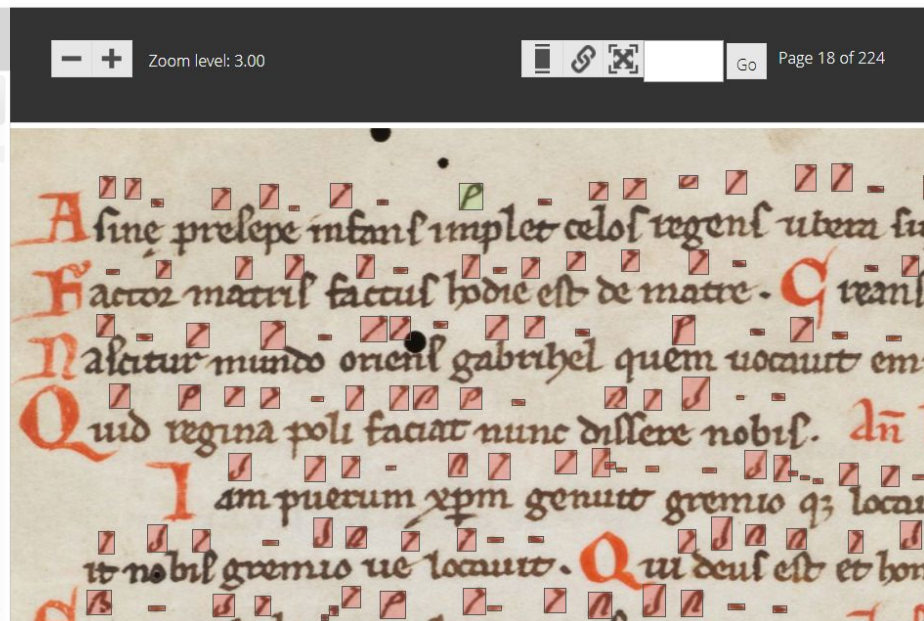 Zoom level: 3.00
Go
Page 18 of 224
A sinę presepe infans implet celos regens ubera su
Factor matris factus hodie est de matre. C reans
Nascitur mundo oriens gabrihel quem uocauit em
Quid regina poli faciat nunc dissere nobis. An̄
Iam puerum xp̄m genuit gremio qz locau
it nobis gremio ue locauit. Qui deus est et hom